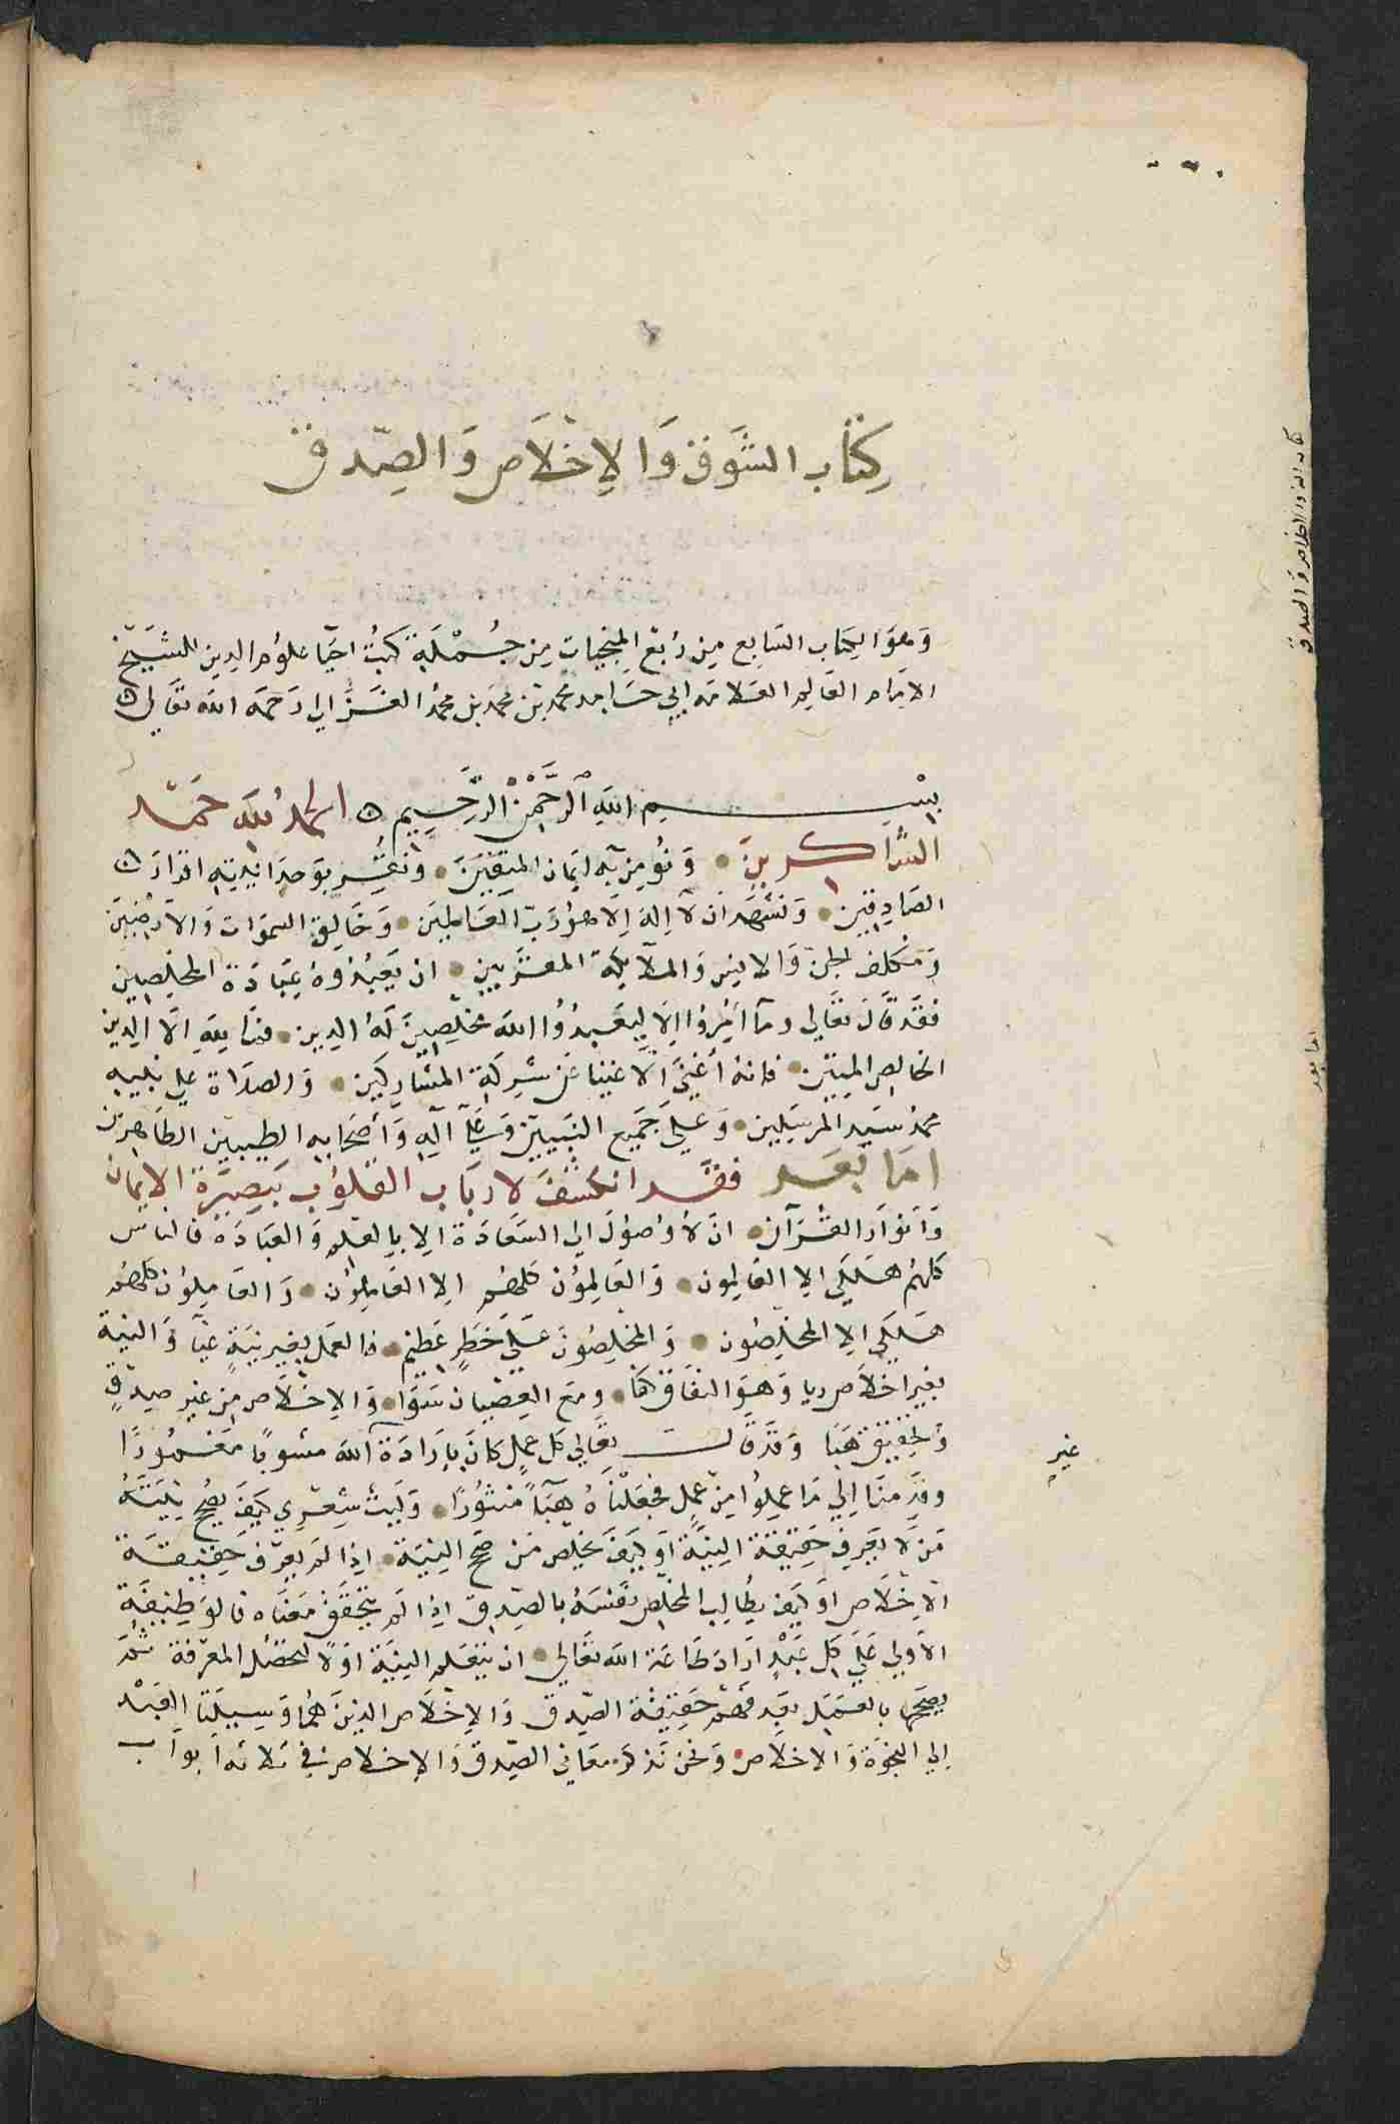 كِتَاب الشَّوق وَالإخْلَاص وَالصِّدق
وَهوَ الكِتاب السَابع مِن رُبع المنجيات مِن جُمْلَة كتبُ احيَا علوُم الدين للشَيخ
الامَام العَالِم العَلامَه ابي حَامِد محمدبن محمَد بن محمُد الغَزَّالي رَحمَه الله تعَالي
بِسْمِ اللهِ الرَّحْمٰنِ الرَّحِيم الحمدُ لله حَمْد
الشَّاكرينَ وَنؤمِن بِه ايمَان الموقنين وَنُقُّر بوَحدَانيته اقرارَ
الصَادِقِين وَنشهَد ان لآ اِلهَ اِلَا هوُ رَبّ العَالمِيَن وَخَالِق السموَات وَالآرضِيَن
وَمكلف الجن وَالانِس وَالملَآيكة المقَربين ان يَعبُدُوهُ عِبَادَة المخلِصِين
فقَد قَالَ تعَالي ومآ اُمِرُوا اِلَا لِيَعبدُوُا اللهَ مخلِصِينَ لَهُ الدين فمَا لِلهِ الَا الدين
الخالِص المتِين فانهُ أغنَي الَاغنيا عَن شِركَة المشَارِكين وَالصَلَاة علي نبيه
محمُد سَيد المرسَلِين وَعَليَ جَميع النبَيِين وَعَلَي آلِه وَأصحَابِه الطيبين الطَاهِرين
امَا بَعَد فقَد انكشَفَ لارباَب القلوُب ببَصِيرَة الايمان
وَأنوَار القُرآن ان لَا وُصوُلَ الي السَعَادَة الا بِالعِلم وَالعبَادَه فالناس
كلهمُ هَلكَي الا العَالِمون وَالعَالِموُن كلهمُ الِا العَامِلوُن وَالعَامِلوُن كلهمُ
هَلكَي الِا المخلِصُون وَالمخلِصُونَ عَلَي خَطَرٍ عَظيِم فالعَمل بغير نيَةٍ عنَا وَالنية
بغير اخلَاص ريا وَهوَ النفَاق كفا ومعَ العِصيَان سَوَا وَالاِخلَاص مِن غير صِدقٍ
وَتحقِيق هَبَا وَقدَ قَالـــ تعَالي كل عَملٍ كانَ بإرَادَة غير اللهَ مشوبًا مَغمُورًا
وقدِمنَا اِلي مَا عمِلوُا مِن عَملٍ فجعَلنَاهُ هبآءً منثوُرًا وَليتَ شِعرِي كيَفَ يصُح نيَتَهُ
مَن لَا يَعرِف حَقِيقة النِيَة أو كيَفَ يخلِص مَن صَح النِيَة اِذا لَم يعرف حِقيقَة
الآِخلَاص أو كيَف يطُالِب المخلِص نفسَهُ بالصِدِق اذِا لَم يتحقَق مَعنَاه فالوَظيفَة
الآوُلي عَلَي كل عَبدٍ ارَادَ طَاعَة الله تعَالي ان يتعَلم النِيَة اوَلًا لتحصُل المعرَفة ثمُ
يصحَها بالعَمَل بعَد فَهم حَقِيقة الصِدق وَالاِخلَاص الذينَ هُما وَسِيلَتا العَبد
اِلي النجَاة وَالاخلَاص وَنحن نذكر معَاني الصِدق وَالاِخلاص في ثلاثه ابوَاب
غير